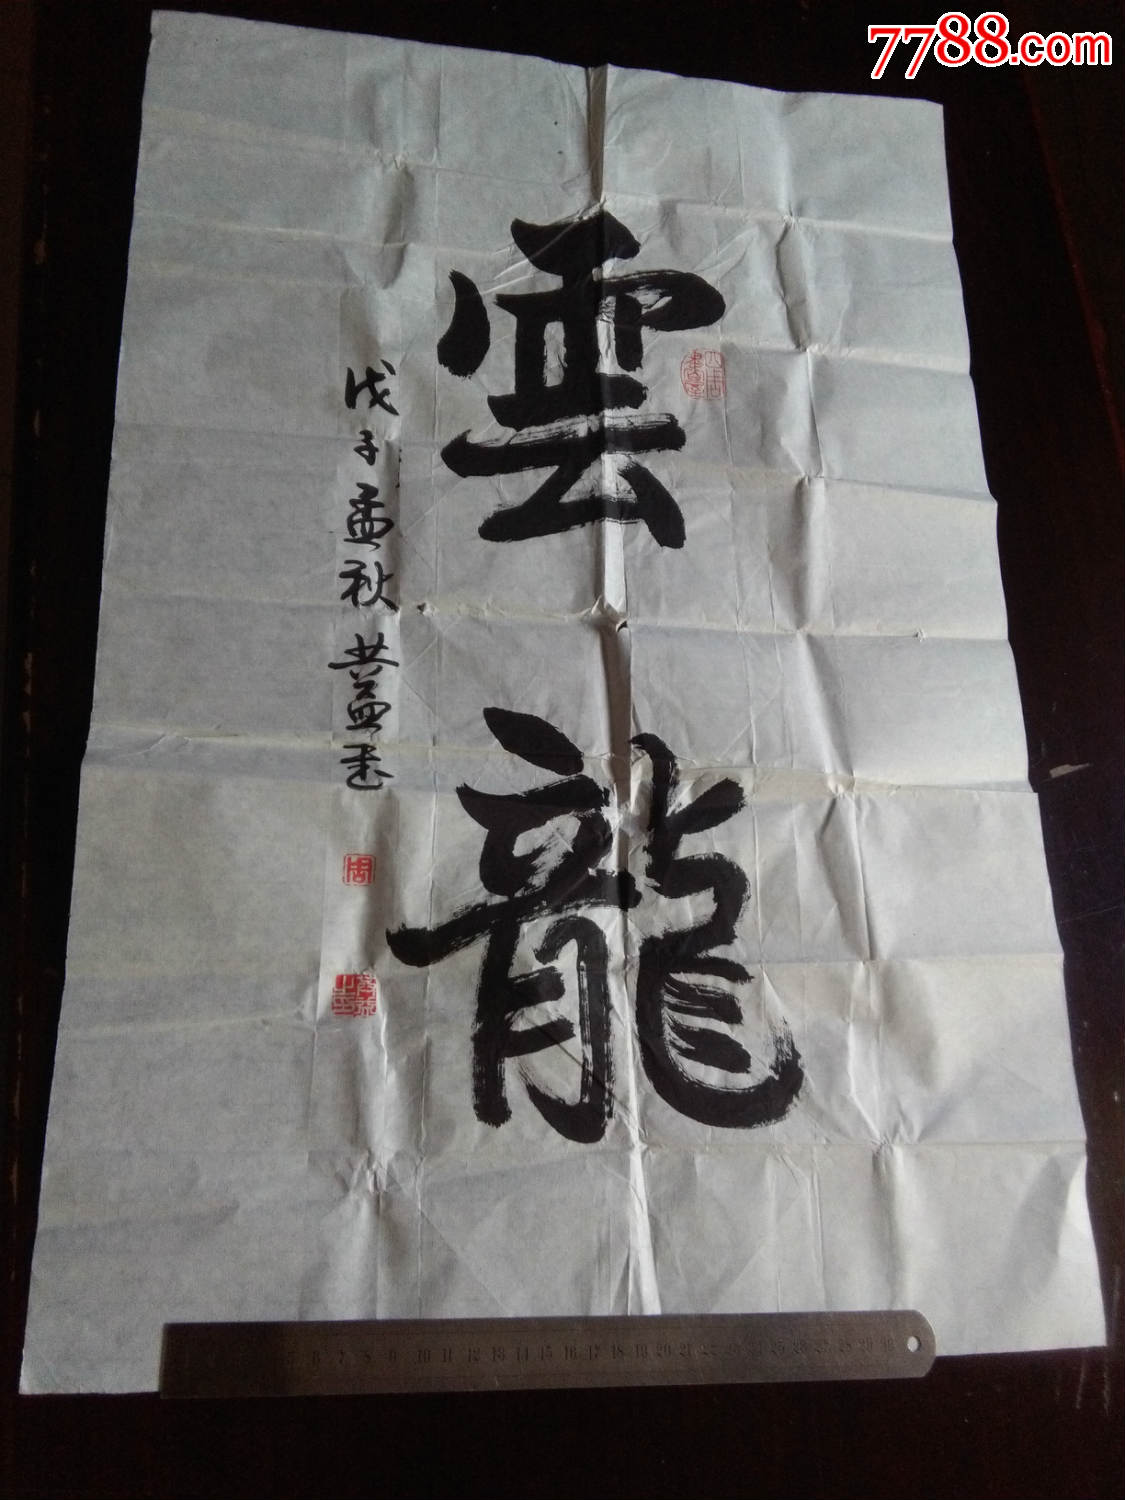 7788.com
雲龍
戊子孟秋 益書
周
5 6 7 8 9 10 11 12 13 14 15 16 17 18 19 20 21 22 23 24 25 26 27 28 29 30